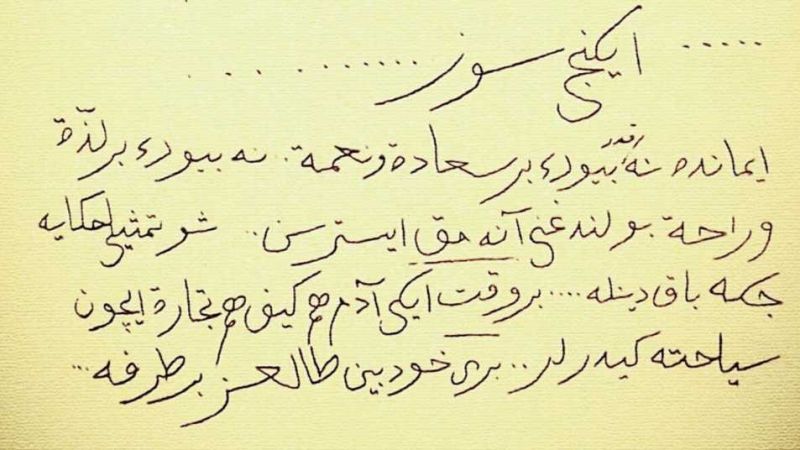 ..... ایکنجی سوز ............
ایمانده نه قدر بیوک بر سعادة و نعمة.. نه بیوک بر لذّة
و راحة بولندغنی آݣلامق ایسترسن.. شو تمثیلی حکایه
جکه باق دیݣله.... بر وقت ایکی آدم هم کیف هم تجارة ایچون
سیاحته کیدرلر.. بری خودبین طالعسز بر طرفه...